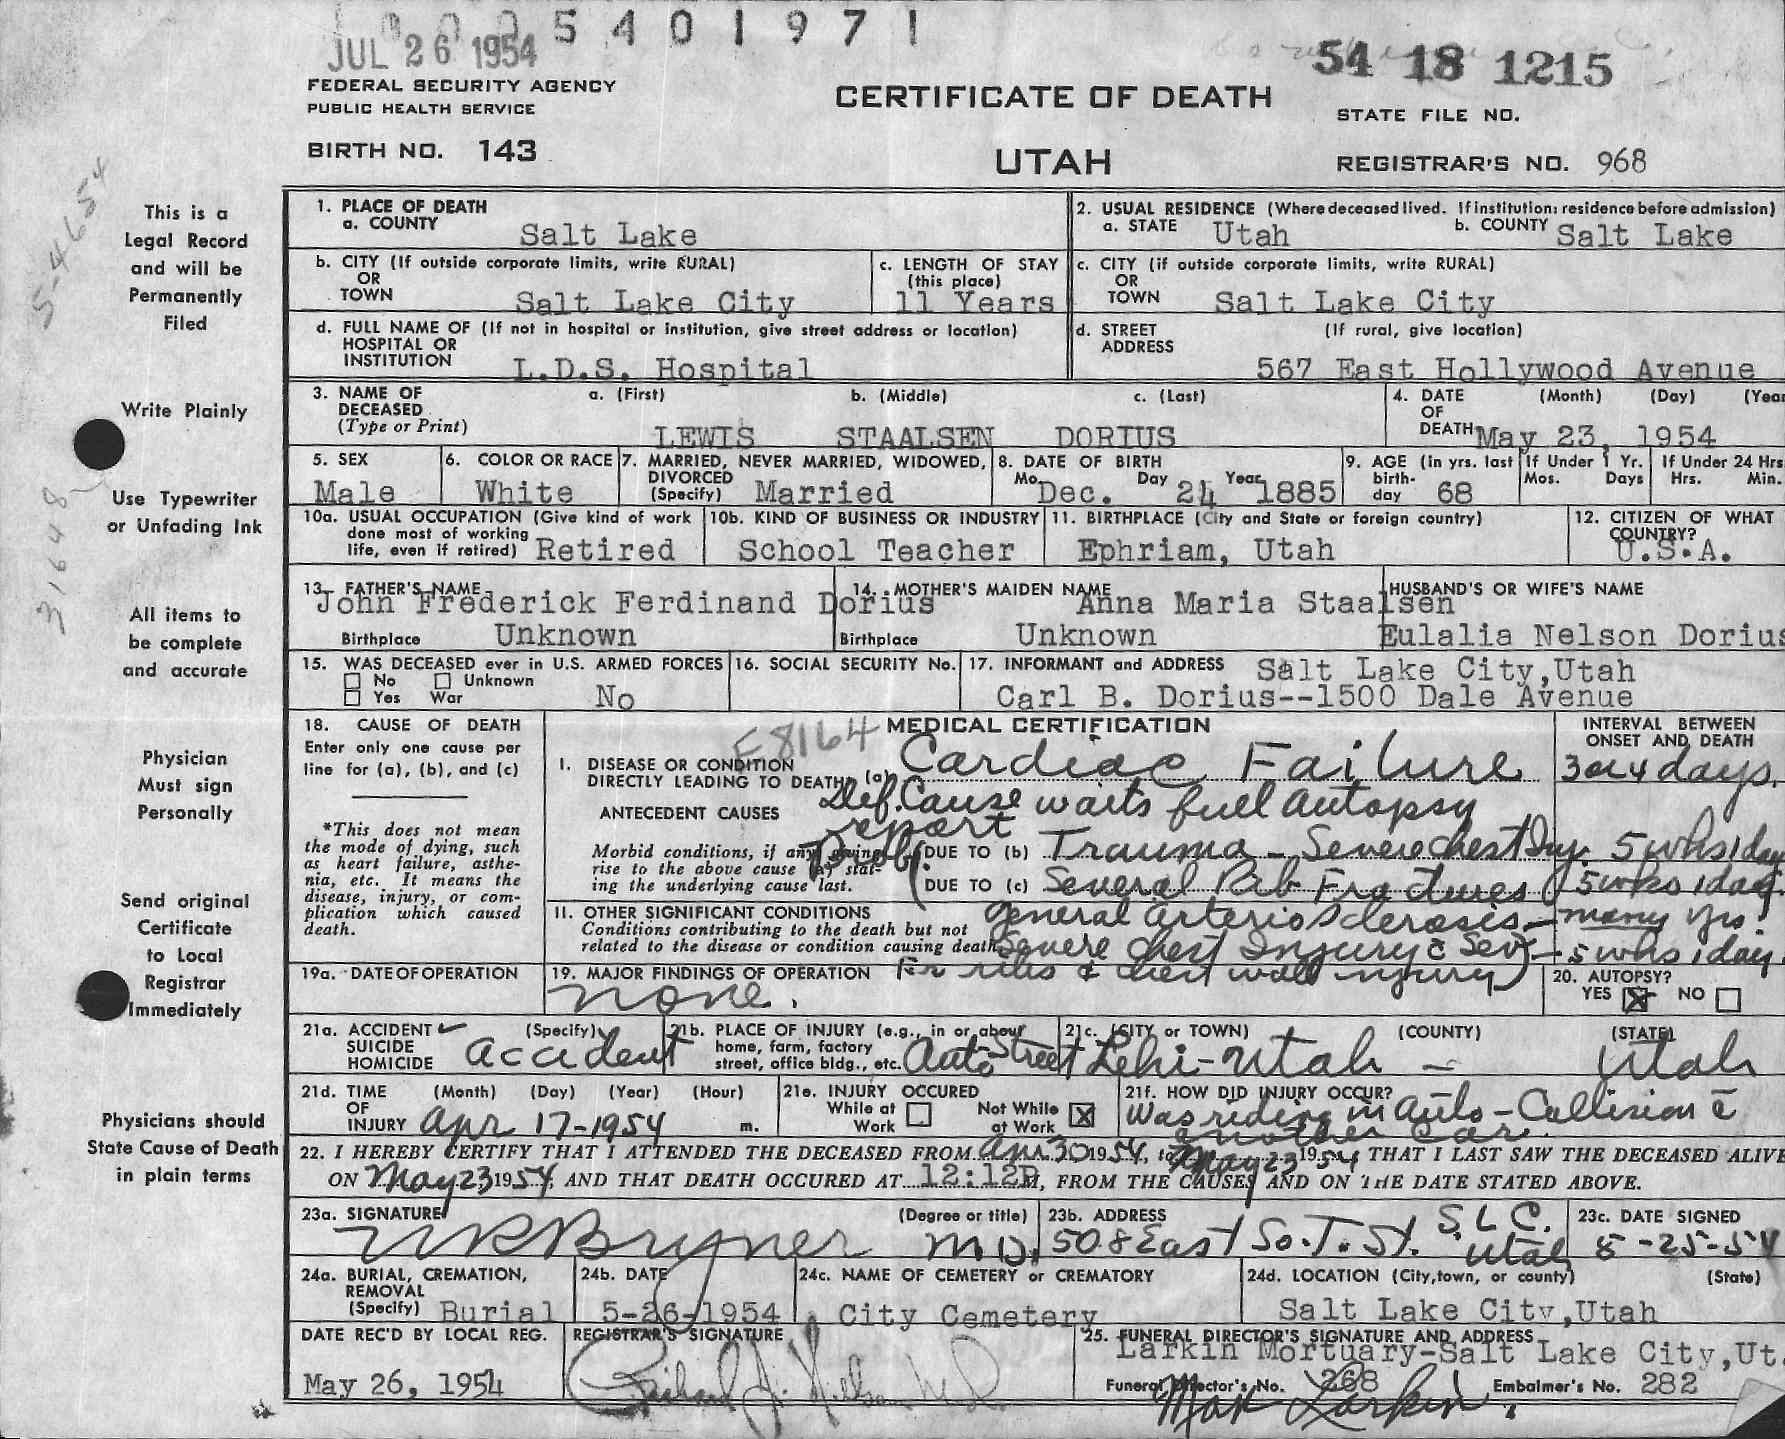 5 4 0 1 9 7 1
JUL 26 1954
54 18 1215
FEDERAL SECURITY AGENCY
PUBLIC HEALTH SERVICE
CERTIFICATE OF DEATH
STATE FILE NO.
BIRTH NO. 143
UTAH
REGISTRAR'S NO. 968
5-4654
31648
This is a
Legal Record
and will be
Permanently
Filed
Write Plainly
Use Typewriter
or Unfading Ink
All items to
be complete
and accurate
Physician
Must sign
Personally
Send original
Certificate
to Local
Registrar
Immediately
Physicians should
State Cause of Death
in plain terms
1. PLACE OF DEATH
a. COUNTY Salt Lake
2. USUAL RESIDENCE (Where deceased lived. If institution: residence before admission)
a. STATE Utah b. COUNTY Salt Lake
b. CITY (If outside corporate limits, write RURAL)
OR
TOWN Salt Lake City
c. LENGTH OF STAY
(this place)
11 Years
c. CITY (if outside corporate limits, write RURAL)
OR
TOWN Salt Lake City
d. FULL NAME OF (If not in hospital or institution, give street address or location)
HOSPITAL OR
INSTITUTION L.D.S. Hospital
d. STREET (If rural, give location)
ADDRESS
567 East Hollywood Avenue
3. NAME OF DECEASED (Type or Print)
a. (First) b. (Middle) c. (Last)
LEWIS STAALSEN DORIUS
4. DATE OF DEATH (Month) (Day) (Year
May 23, 1954
5. SEX
Male
6. COLOR OR RACE
White
7. MARRIED, NEVER MARRIED, WIDOWED,
DIVORCED
(Specify) Married
8. DATE OF BIRTH
Mo. Dec. Day 24 Year 1885
9. AGE (in yrs. last
birth-
day 68
If Under 1 Yr.
Mos. Days
If Under 24 Hrs
Hrs. Min.
10a. USUAL OCCUPATION (Give kind of work
done most of working
life, even if retired) Retired
10b. KIND OF BUSINESS OR INDUSTRY
School Teacher
11. BIRTHPLACE (City and State or foreign country)
Ephriam, Utah
12. CITIZEN OF WHAT
COUNTRY?
U.S.A.
13. FATHER'S NAME
John Frederick Ferdinand Dorius
Birthplace Unknown
14. MOTHER'S MAIDEN NAME
Anna Maria Staalsen
Birthplace Unknown
HUSBAND'S OR WIFE'S NAME
Eulalia Nelson Dorius
15. WAS DECEASED ever in U.S. ARMED FORCES
No Unknown
Yes War No
16. SOCIAL SECURITY No.
17. INFORMANT and ADDRESS Salt Lake City,Utah
Carl B. Dorius--1500 Dale Avenue
18. CAUSE OF DEATH
Enter only one cause per
line for (a), (b), and (c)
*This does not mean
the mode of dying, such
as heart failure, asthe-
nia, etc. It means the
disease, injury, or com-
plication which caused
death.
E8164
MEDICAL CERTIFICATION
INTERVAL BETWEEN
ONSET AND DEATH
I. DISEASE OR CONDITION
DIRECTLY LEADING TO DEATH* (a) Cardiac Failure 3 or 4 days.
Def. Cause waits full autopsy
report
ANTECEDENT CAUSES
Morbid conditions, if any, giving
rise to the above cause (a) stat-
ing the underlying cause last.
Prob.
DUE TO (b) Trauma - Severe chest Inj. 5 wks 1 day
DUE TO (c) Several Rib Fractures 5 wks 1 day.
II. OTHER SIGNIFICANT CONDITIONS
Conditions contributing to the death but not
related to the disease or condition causing death.
General Arteriosclerosis - many yrs.
Severe Chest Injury c̄ Sev - 5 wks 1 day.
Fx ribs & chest wall injury
19a. DATE OF OPERATION
19. MAJOR FINDINGS OF OPERATION
none.
20. AUTOPSY?
YES X NO
21a. ACCIDENT ✓ (Specify)
SUICIDE
HOMICIDE Accident
21b. PLACE OF INJURY (e.g., in or about
home, farm, factory
street, office bldg., etc. Auto-Street
21c. (CITY or TOWN) (COUNTY) (STATE)
Lehi-Utah - Utah
21d. TIME (Month) (Day) (Year) (Hour)
OF
INJURY Apr 17-1954 m.
21e. INJURY OCCURED
While at Work Not While at Work X
21f. HOW DID INJURY OCCUR?
Was riding in Auto-Collision c̄
another car.
22. I HEREBY CERTIFY THAT I ATTENDED THE DECEASED FROM Apr 30 1954, to May 23 1954 THAT I LAST SAW THE DECEASED ALIVE
ON May 23, 1954, AND THAT DEATH OCCURED AT 12:12P M, FROM THE CAUSES AND ON THE DATE STATED ABOVE.
23a. SIGNATURE (Degree or title)
Bryner M.D.
23b. ADDRESS
508 East So. T. St. S.L.C. Utah
23c. DATE SIGNED
5-25-54
24a. BURIAL, CREMATION,
REMOVAL
(Specify) Burial
24b. DATE
5-26-1954
24c. NAME OF CEMETERY or CREMATORY
City Cemetery
24d. LOCATION (City,town, or county) (State)
Salt Lake City,Utah
DATE REC'D BY LOCAL REG.
May 26, 1954
REGISTRAR'S SIGNATURE
25. FUNERAL DIRECTOR'S SIGNATURE AND ADDRESS
Larkin Mortuary-Salt Lake City,Ut.
Funeral Director's No. 268 Embalmer's No. 282
Max Larkin.